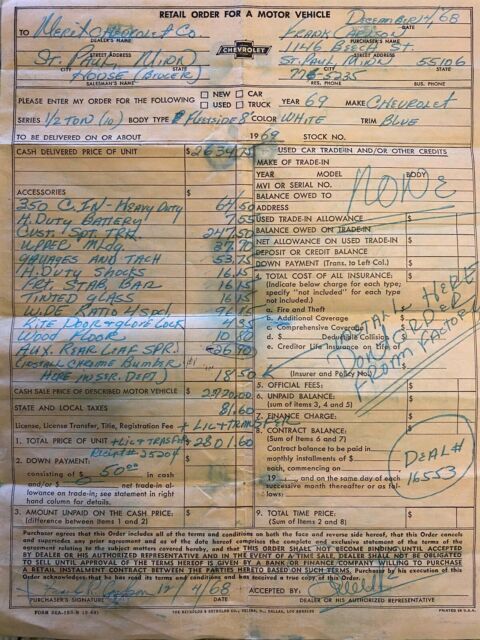 RETAIL ORDER FOR A MOTOR VEHICLE
December 12/4/68
TO Merit Chevrolet Co.
DEALER'S NAME
CHEVROLET
Frank Carlson
PURCHASER'S NAME
1146 Beech St.
STREET ADDRESS
St. Paul, Minn
STREET ADDRESS
St. Paul, Minn 55106
CITY STATE
House
SALESMAN'S NAME
776-5235
RES. PHONE BUS. PHONE
PLEASE ENTER MY ORDER FOR THE FOLLOWING NEW CAR USED TRUCK YEAR 69 MAKE Chevrolet
SERIES 1/2 Ton (10) BODY TYPE Fleetside 8' COLOR White TRIM Blue
TO BE DELIVERED ON OR ABOUT 1969 STOCK NO.
CASH DELIVERED PRICE OF UNIT $ 2634.75
ACCESSORIES
350 C.IN - Heavy Duty 64.50
H. Duty Battery 7.55
Cust. Spt. Trk 247.50
Upper Mldg. 37.70
Gauages and Tach 53.75
H. Duty Shocks 16.15
Frt. Stab. Bar 16.15
Tinted Glass 16.15
Wide Ratio 4 Spd.
Wood Floor
Aux. Rear Leaf Spr.
(Install Chrome Bumper #1
Here in Ser. Dept) 18.50
CASH SALE PRICE OF DESCRIBED MOTOR VEHICLE $
STATE AND LOCAL TAXES 81.60
License, License Transfer, Title, Registration Fee + Lic + Transfer
1. TOTAL PRICE OF UNIT + Lic + Transfer $ 2801.60
Receipt # 35204
2. DOWN PAYMENT:
consisting of $ 50.00 in cash
and/or $ net trade-in al-
lowance on trade-in; see statement in right
hand column for details.
3. AMOUNT UNPAID ON THE CASH PRICE:
(difference between Items 1 and 2) $
USED CAR TRADE-IN AND/OR OTHER CREDITS
MAKE OF TRADE-IN
YEAR MODEL BODY
MVI OR SERIAL NO.
None
BALANCE OWED TO
ADDRESS
USED TRADE-IN ALLOWANCE $
BALANCE OWED ON TRADE-IN $
NET ALLOWANCE ON USED TRADE-IN $
DEPOSIT OR CREDIT BALANCE $
DOWN PAYMENT (Trans. to Left Col.) $
4. TOTAL COST OF ALL INSURANCE:
(Indicate below charge for each type;
specify "not included" for each type
not included.)
a. Fire and Theft $
b. Additional Coverage $
c. Comprehensive Coverage $
d. $ Deductible Collision $
e. Creditor Life Insurance on Life of
(Insurer and Policy No.)
Install Here
Don't Order
From Factory
5. OFFICIAL FEES: $
6. UNPAID BALANCE:
(sum of items 3, 4 and 5) $
7. FINANCE CHARGE: $
8. CONTRACT BALANCE:
(Sum of Items 6 and 7) $
Contract balance to be paid in
monthly installments of $
each, commencing on
19 , and on the same day of each
successive month thereafter or as fol-
lows:
Deal #
16553
9. TOTAL TIME PRICE:
(Sum of Items 2 and 8) $
Purchaser agrees that this Order includes all of the terms and conditions on both the face and reverse side hereof, that this Order cancels
and supersedes any prior agreement and as of the date hereof comprises the complete and exclusive statement of the terms of the
agreement relating to the subject matters covered hereby, and that THIS ORDER SHALL NOT BECOME BINDING UNTIL ACCEPTED
BY DEALER OR HIS AUTHORIZED REPRESENTATIVE AND IN THE EVENT OF A TIME SALE, DEALER SHALL NOT BE OBLIGATED
TO SELL UNTIL APPROVAL OF THE TERMS HEREOF IS GIVEN BY A BANK OR FINANCE COMPANY WILLING TO PURCHASE
A RETAIL INSTALMENT CONTRACT BETWEEN THE PARTIES HERETO BASED ON SUCH TERMS. Purchaser by his execution of this
Order acknowledges that he has read its terms and conditions and has received a true copy of this Order.
12/4/68 ACCEPTED BY:
PURCHASER'S SIGNATURE DATE DEALER OR HIS AUTHORIZED REPRESENTATIVE
PRINTED IN U.S.A.